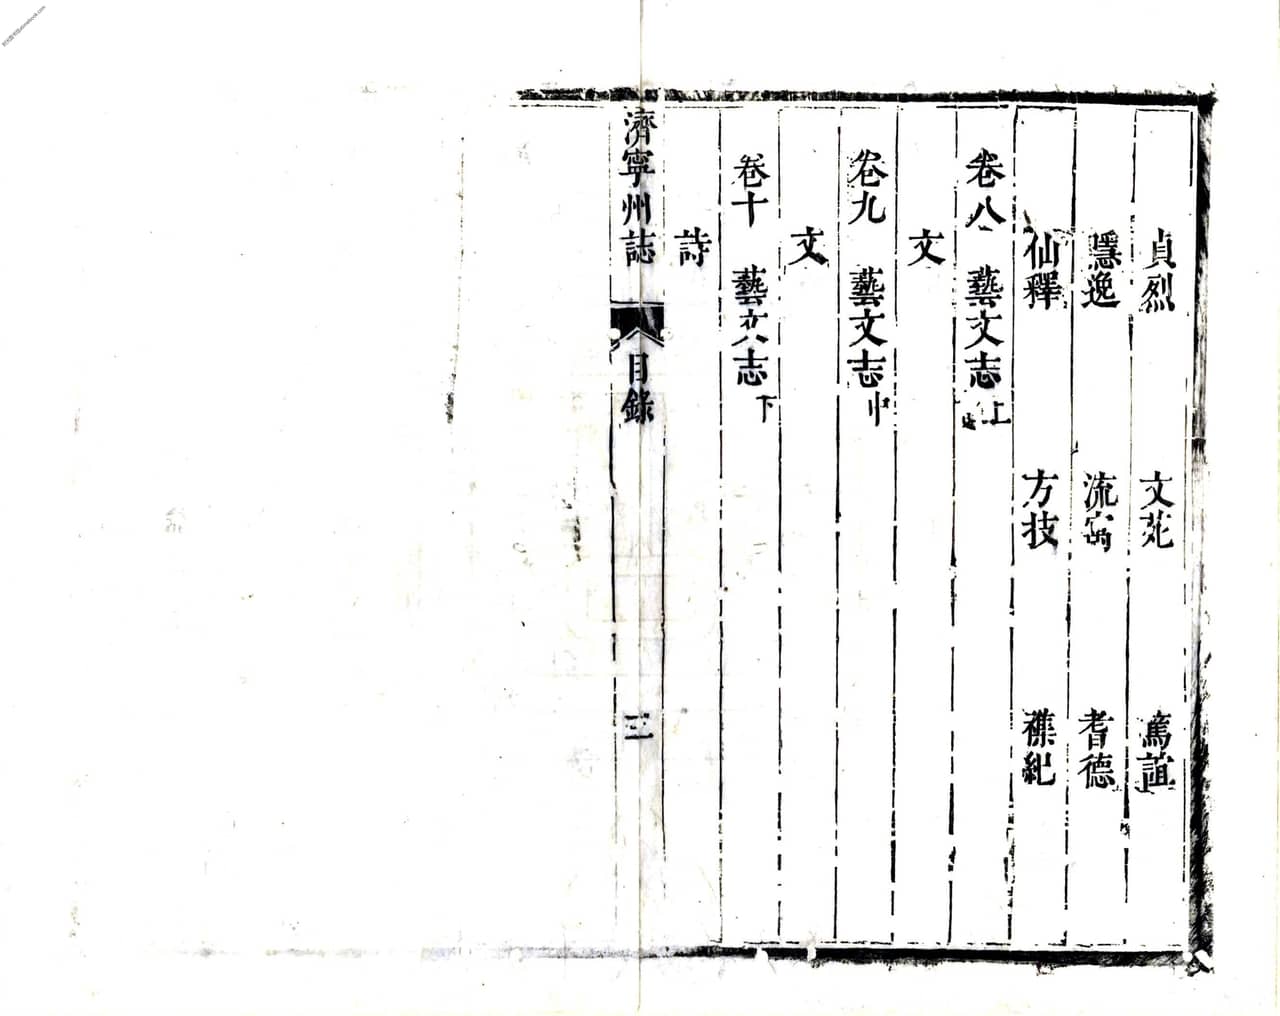 貞烈 文苑 篤誼
隱逸 流寓 耆德
仙釋 方技 襍紀
卷八 藝文志上
文
卷九 藝文志中
文
卷十 藝文志下
詩
濟寧州誌 目錄 三